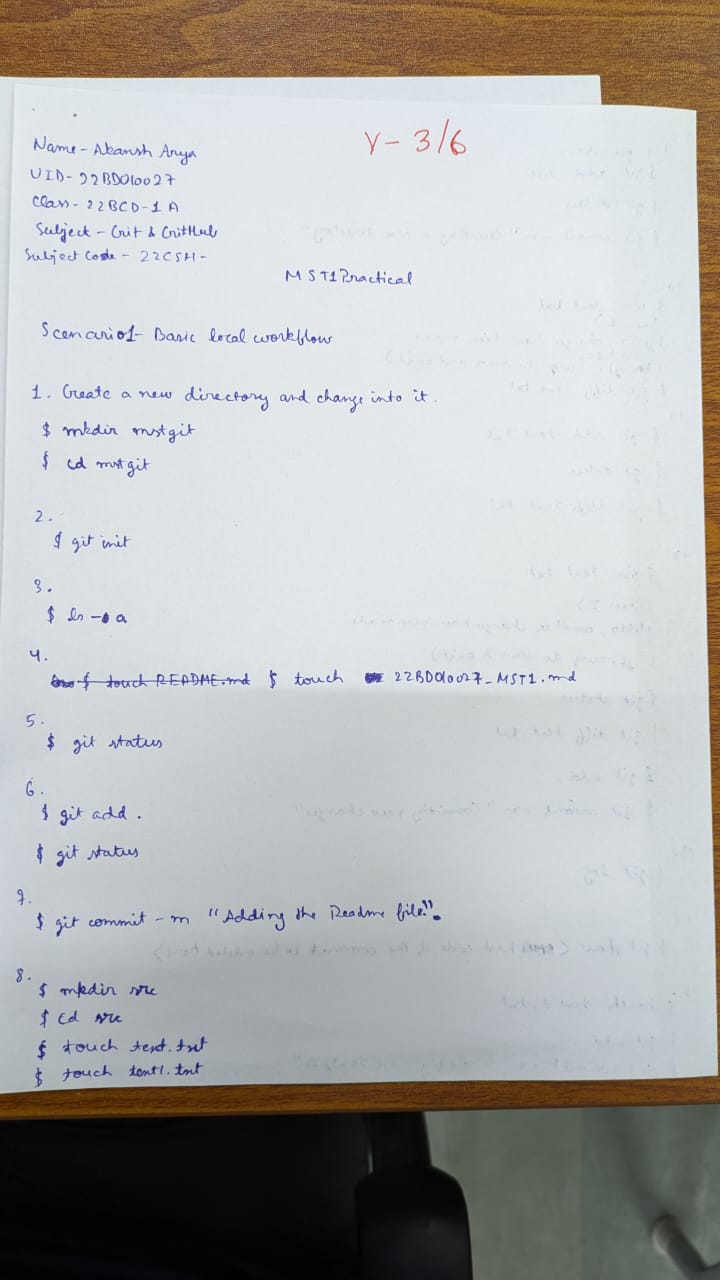 V- 3/6
Name - Akansh Arya
UID- 22BDO10027
Class - 22BCD-1 A
Subject - Git & GitHub
Subject Code - 22CSH-
MST1 Practical
Scenario1- Basic local workflow
1. Create a new directory and change into it.
$ mkdir mstgit
$ cd mstgit
2.
$ git init
3.
$ ls -a
4.
$ touch README.md $ touch 22BDO10027_MST1.md
5.
$ git status
6.
$ git add .
$ git status
7.
$ git commit -m "Adding the Readme file".
8.
$ mkdir src
$ cd src
$ touch text.txt
$ touch text1.txt